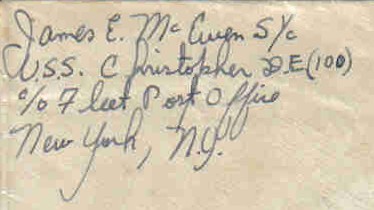 James E. McEwen S/c
U.S.S. Christopher D.E(100)
c/o Fleet Post Office
New York, N.Y.